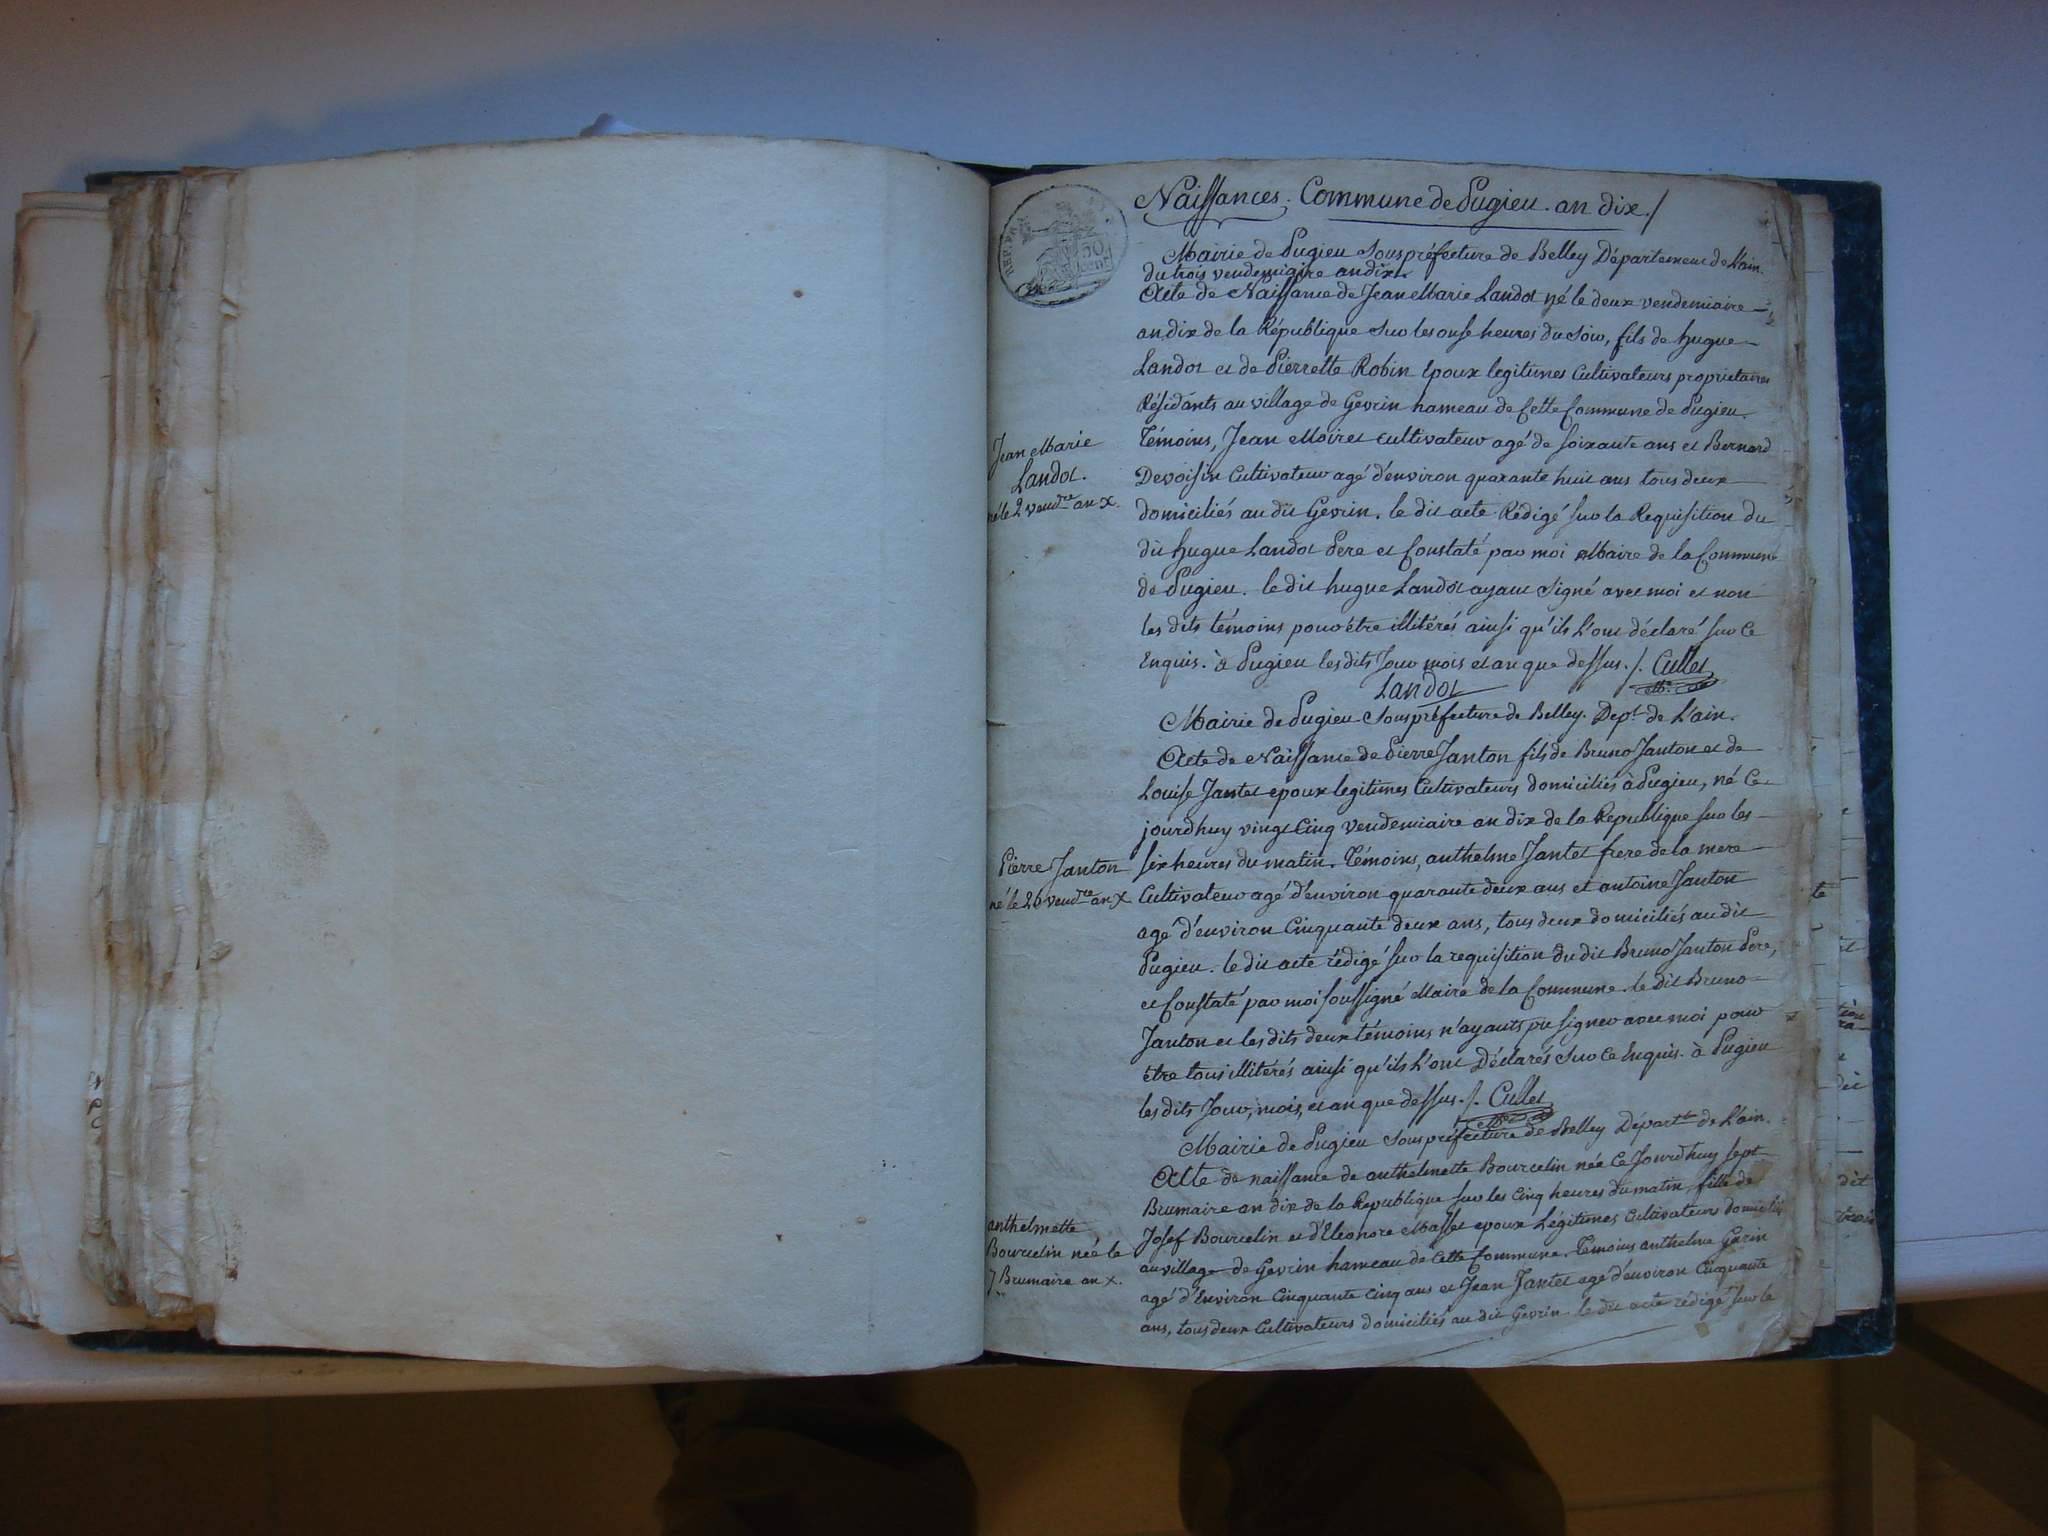 Naissances. Commune de Pugieu. an dix./
REP. FRA.
50
cent
Mairie de Pugieu Souspréfecture de Belley Département de L'ain.
du trois vendemiaire an dix.
Acte de Naissance de Jean Marie Landot né le deux vendemiaire
an dix de la République sur les onse heures du Soir, fils de hugue
Landot et de Pierrette Robin Epoux legitimes Cultivateurs proprietaires
Résidants au village de Gevrin hameau de Cette Commune de Pugieu.
Témoins, Jean Moiret cultivateur agé de soixante ans et Bernard
Devoisin Cultivateur agé d'environ quarante huit ans tous deux
domiciliés au dit Gevrin. le dit acte Rédigé sur la Requisition du
dit hugue Landot Pere et Constaté par moi Maire de la Commune
de Pugieu. le dit hugue Landot ayant Signé avec moi et non
les dits témoins pour être illitérés ainsi qu'ils L'ont déclaré sur Ce
Enquis. à Pugieu les dits Jour mois et an que dessus./. Cullet
Landot
Jean Marie
Landot.
né le 2 vend.re an X.
Mairie de Pugieu Souspréfecture de Belley. Dep.t de L'ain.
Acte de Naissance de Pierre Janton fils de Bruno Janton et de
Louise Jantet epoux legitimes Cultivateurs domiciliés à Pugieu, né Ce
jourdhuy vingt Cinq Vendemiaire an dix de la Republique sur les
six heures du matin. Témoins, anthelme Jantet frere de la mere
Cultivateur agé d'environ quarante deux ans et antoine Janton
agé d'environ Cinquante deux ans, tous deux domiciliés au dit
Pugieu. le dit acte rédigé sur la requisition du dit Bruno Janton Pere,
et Constaté par moi soussigné Maire de la Commune. le dit Bruno
Janton et les dits deux témoins n'ayants pu signer avec moi pour
être tous illitérés ainsi qu'ils L'ont Déclarés sur Ce Enquis. à Pugieu
les dits Jour, mois, et an que dessus./. Cullet
Pierre Janton
né le vend.re an X
Mairie de Pugieu Souspréfecture de Belley Départ.t de L'ain.
Acte de naissance de anthelmette Bourcelin née Ce Jourdhuy sept
Brumaire an dix de la Republique sur les Cinq heures du matin, fille de
Josef Bourcelin et d'Eleonore Masset epoux Légitimes Cultivateurs domiciliés
au village de Gevrin hameau de Cette Commune. Temoins anthelme Garin
agé d'Environ Cinquante Cinq ans et Jean Jantet agé d'environ Cinquante
ans, tous deux Cultivateurs domiciliés au dit Gevrin. le dit acte rédigé sur la
anthelmette
Bourcelin née le
7 Brumaire an X.